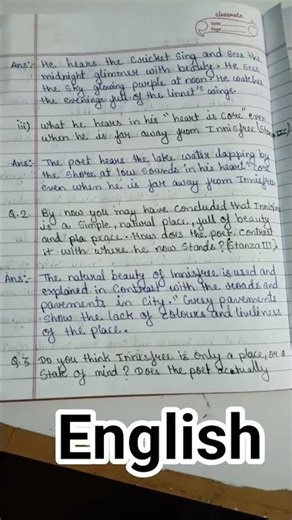 classmate
Date
Page
Ans:- He hears the Cricket Sing and Sees the
midnight glimmer with beauty. He sees
the sky glowing purple at noon. He watches
the evenings full of the linnet's wings.
iii) What he hears in his "heart is core" even
when he is far away from Innisfree (Stanza III)
Ans:- The poet hears the lake water lapping by
the Shore at low sounds in his heart "core
even when he is far away from Innisfree
Q.2 By now you may have concluded that Innisfree
is a Simple, natural place, full of beauty
and pla peace. How does the poet contrast
it with where he now stands? (Stanza III)
Ans:- The natural beauty of Innisfree is used and
explained in Contrast with the roads and
pavements in city. "Grey pavements
Show the lack of colours and liveliness
of the place.
Q.3 Do you think Innisfree is only a place, or a
State of mind? Does the poet actually
English